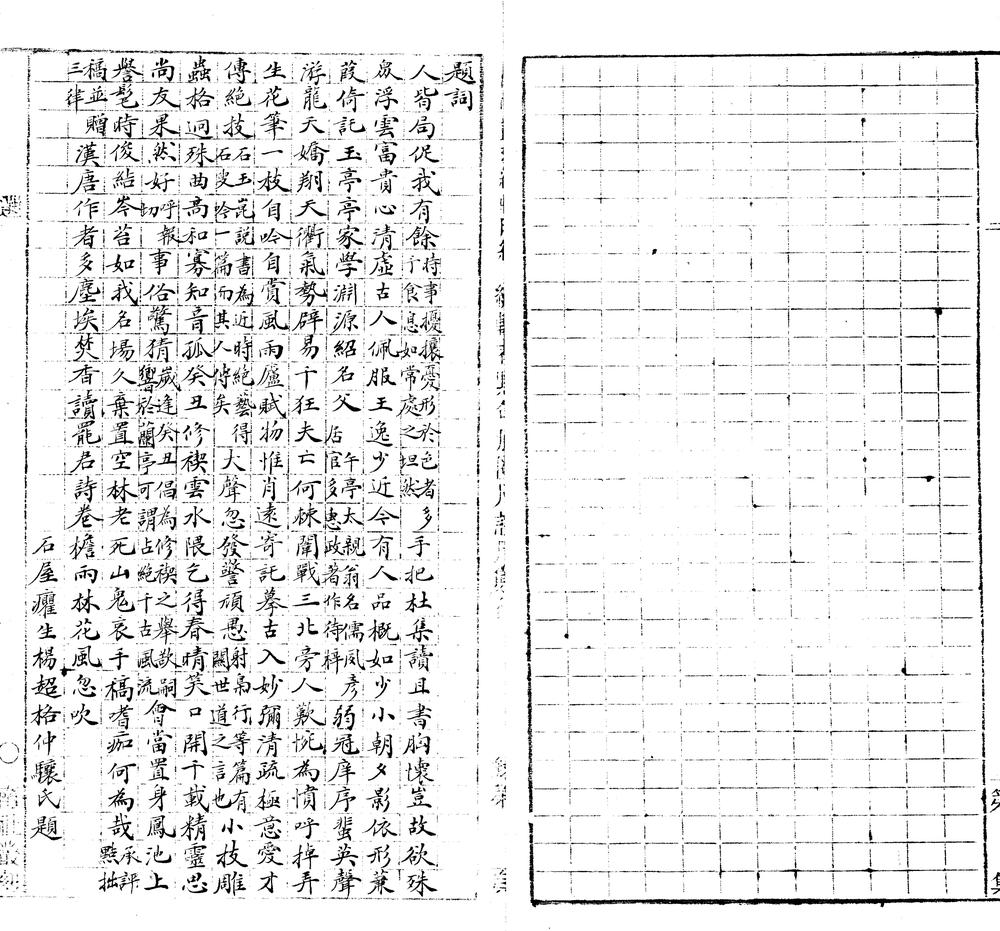 題詞
人皆局促我有餘持事擾攘憂形於色者多于食息如常處之坦然手把杜集讀且書胸懷豈故欲殊
眾浮雲富貴心清虛古人佩服王逸少近今有人品概如少小朝夕影依形蒹
葭倚託玉亭亭家學淵源紹名父午亭太親翁名儒夙彥居官多惠政著作待梓弱冠庠序蜚英聲
游龍天嬌翔天衢氣勢辟易千狂夫亡何棘闈戰三北旁人歎惋為憤呼掉弄
生花筆一枝自吟自賞風雨廬賦物惟肖遠寄託摹古入妙彌清疏極意愛才
傳絕技石玉崑說書為近時絕藝得石叟吟一篇而其人傳矣大聲忽發警頑愚射梟行等篇有關世道之言也小技雕
蟲格迥殊曲高和寡知音孤癸丑修禊雲水隈乞得春晴笑口開千載精靈思
尚友果然好呼切報事俗驚猜歲逢癸丑倡為修禊之舉歆嗣響於蘭亭可謂占絕千古風流會當置身鳳池上
譽髦時俊結岑苔如我名場久棄置空林老死山鬼哀手稿嗜痂何為哉承評點拙
稿並贈三律漢唐作者多塵埃焚香讀罷君詩卷檐雨林花風忽吹
石屋癯生楊超格仲驤氏題